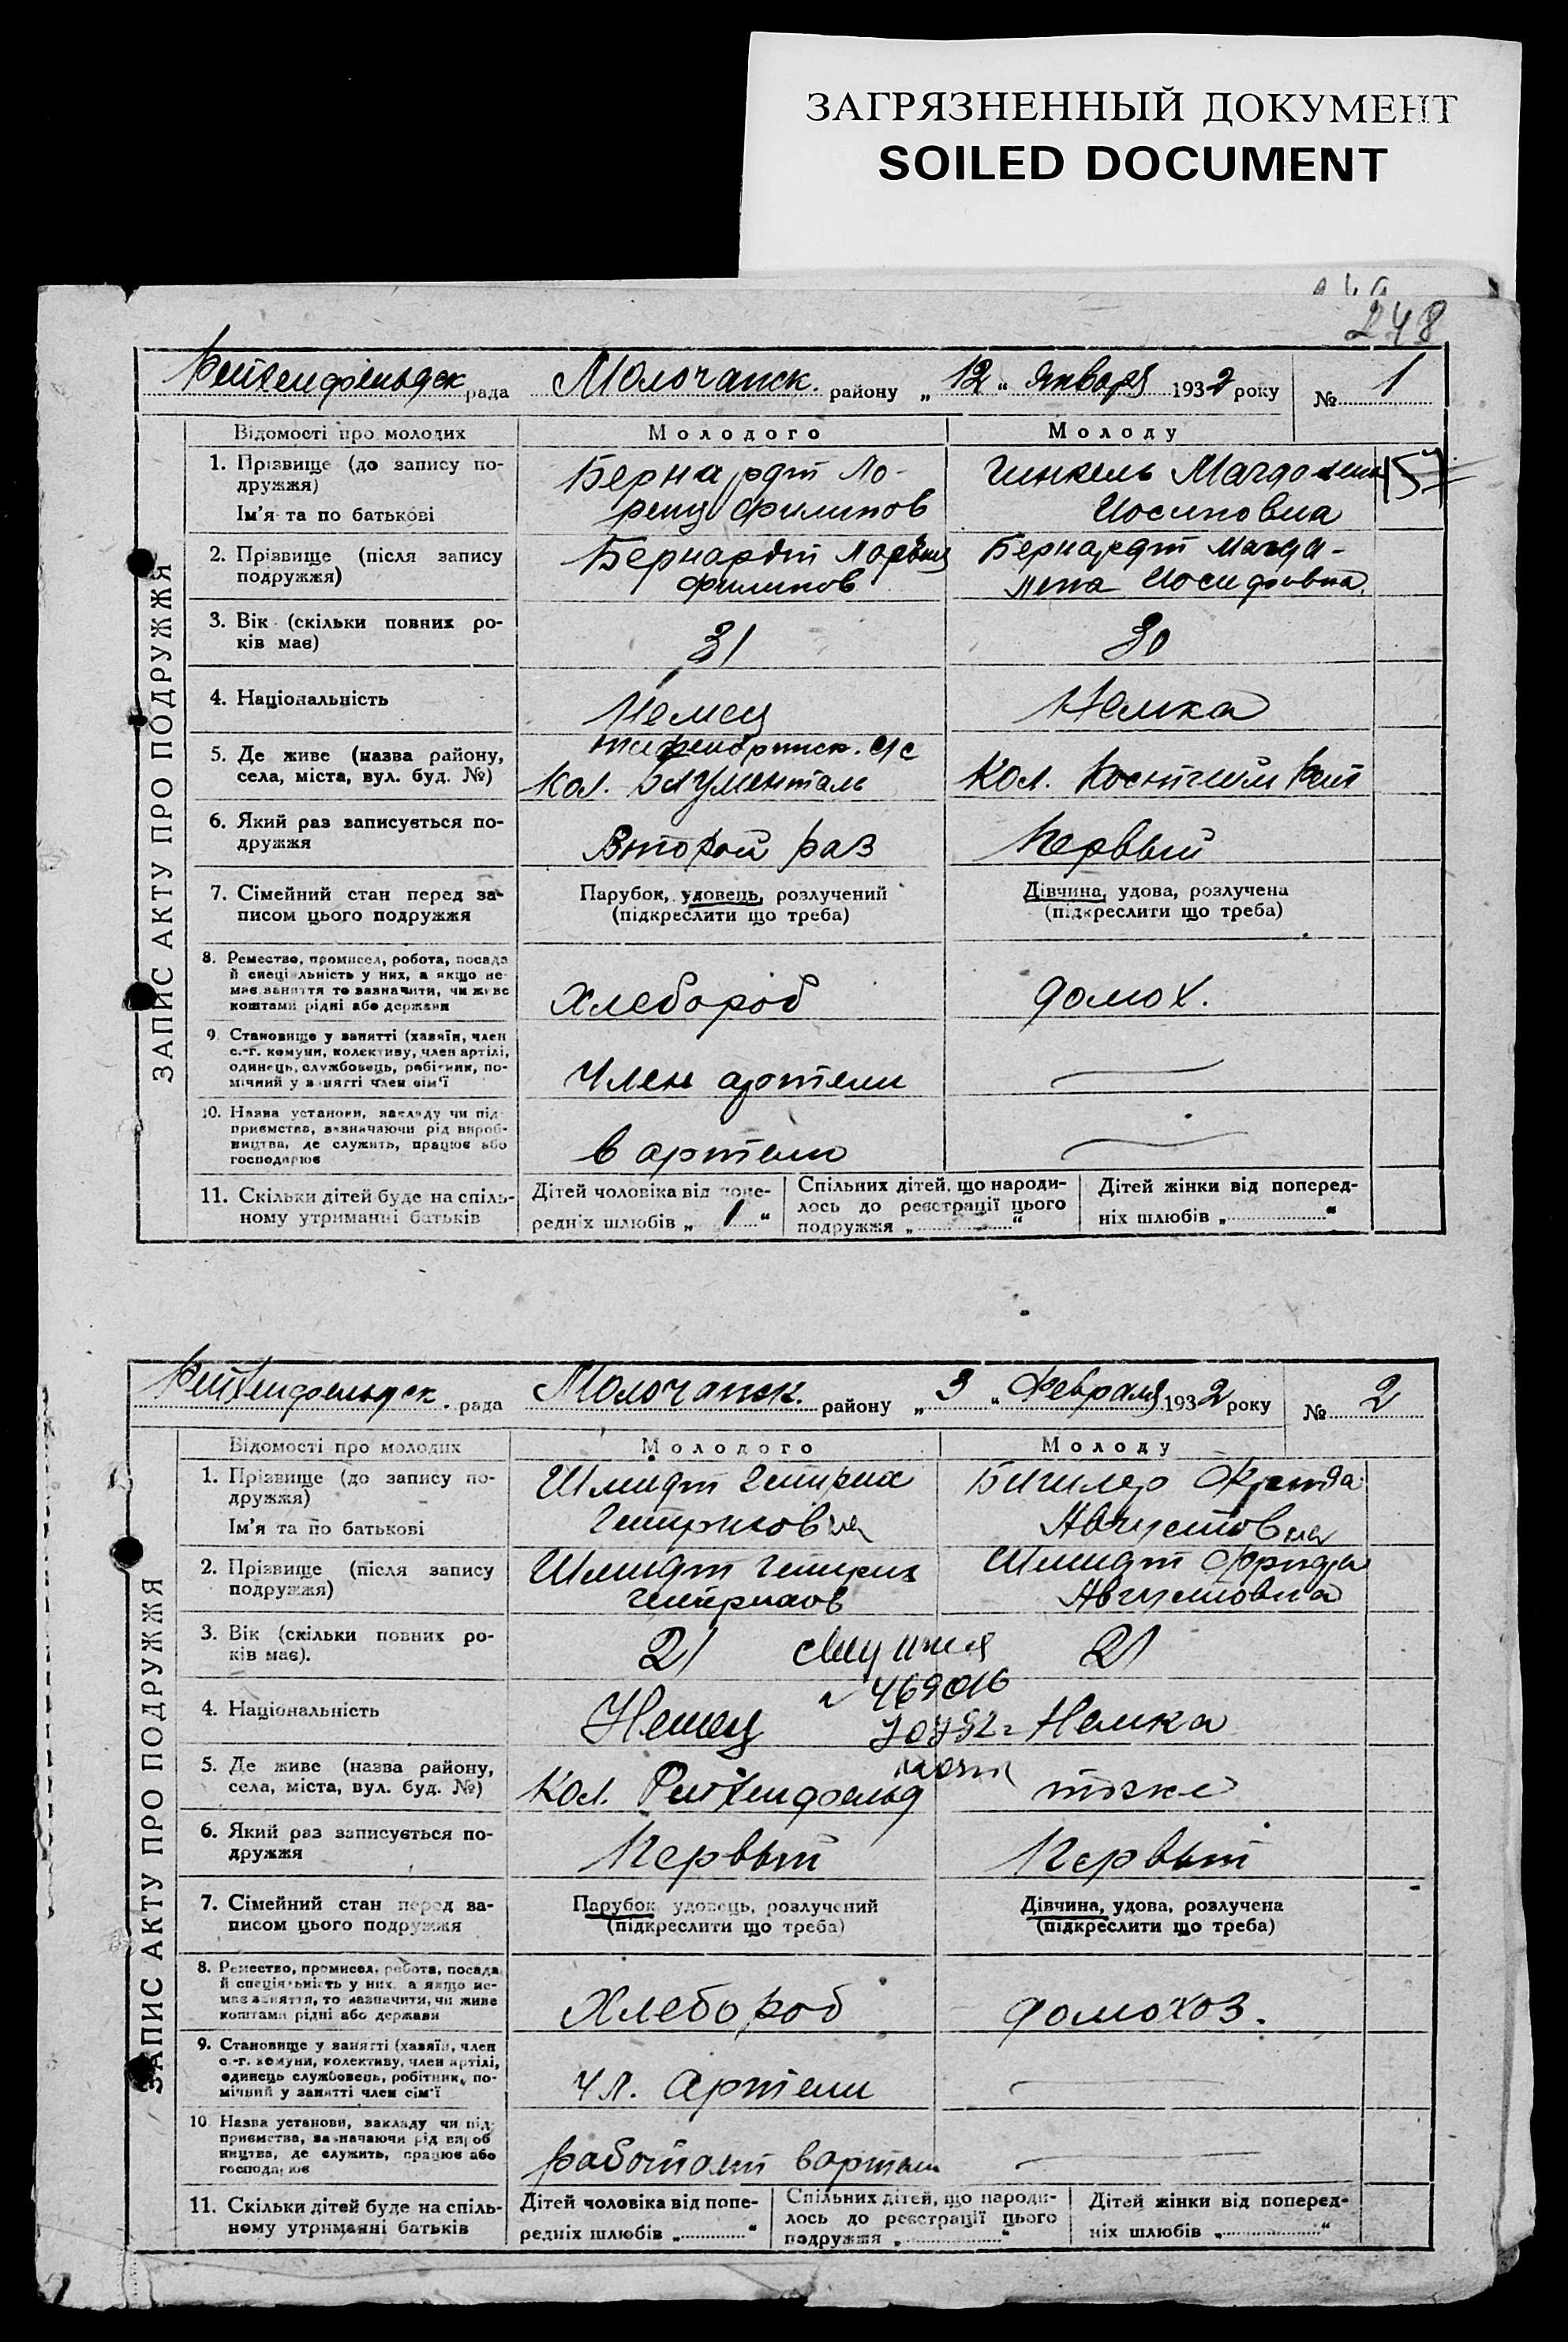 ЗАГРЯЗНЕННЫЙ ДОКУМЕНТ
SOILED DOCUMENT
248
Рейхенфельдск рада Молочанск. району „12“ января 1932 року № 1
ЗАПИС АКТУ ПРО ПОДРУЖЖЯ
Відомості про молодих Молодого Молоду
1. Прізвище (до запису по-
дружжя)
Ім'я та по батькові
Бернардт Ло-
ренц Филипов
Гинкель Магдолена
Иосиповна
157
2. Прізвище (після запису
подружжя)
Бернардт Лоренц
Филипов
Бернардт Магда-
лена Иосифовна
3. Вік (скільки повних ро-
ків має)
31
30
4. Національність
Немец
Немка
5. Де живе (назва району,
села, міста, вул. буд. №)
с/с
Кол. Блументаль
Кол.
6. Який раз записується по-
дружжя
Второй раз
Первый
7. Сімейний стан перед за-
писом цього подружжя
Парубок, удовець, розлучений
(підкреслити що треба)
Дівчина, удова, розлучена
(підкреслити що треба)
8. Ремество, промисел, робота, посада
й спеціяльність у них, а якщо не-
має заняття то зазначити, чи живе
коштами рідні або держави
Хлебороб
домох.
9. Становище у занятті (хазяїн, член
с.-г. комуни, колективу, член артілі,
одинець, службовець, робітник, по-
мічний у занятті член сім'ї
Член артели
10. Назва установи, закладу чи під-
приємства, зазначаючи рід вироб-
ництва, де служить, працює або
господарює
в артели
11. Скільки дітей буде на спіль-
ному утриманні батьків
Дітей чоловіка від попе-
редніх шлюбів „1“
Спільних дітей, що народи-
лось до реєстрації цього
подружжя „ “
Дітей жінки від поперед-
ніх шлюбів „ “
Рейхенфельдск. рада Молочанск. району „3“ Февраля 1932 року № 2
ЗАПИС АКТУ ПРО ПОДРУЖЖЯ
Відомості про молодих Молодого Молоду
1. Прізвище (до запису по-
дружжя)
Ім'я та по батькові
Шмидт Генрих
Генрихов
Бигилер Фрида
Августовна
2. Прізвище (після запису
подружжя)
Шмидт Генрих
Генрихов
Шмидт Фрида
Августовна
3. Вік (скільки повних ро-
ків має).
21
21
4. Національність
Немец
469016
Немка
5. Де живе (назва району,
села, міста, вул. буд. №)
Кол. Рейхенфельд
тоже
6. Який раз записується по-
дружжя
Первый
Первый
7. Сімейний стан перед за-
писом цього подружжя
Парубок, удовець, розлучений
(підкреслити що треба)
Дівчина, удова, розлучена
(підкреслити що треба)
8. Ремество, промисел, робота, посада
й спеціяльність у них, а якщо не-
має заняття, то зазначити, чи живе
коштами рідні або держави
Хлебороб
домохоз.
9. Становище у занятті (хазяїн, член
с.-г. комуни, колективу, член артілі,
одинець службовець, робітник, по-
мічний у занятті член сім'ї
чл. артели
10 Назва установи, закладу чи під-
приємства, зазначаючи рід вироб
ництва, де служить, працює або
господарює
работает в артели
11. Скільки дітей буде на спіль-
ному утриманні батьків
Дітей чоловіка від попе-
редніх шлюбів „ “
Спільних дітей, що народи-
лось до реєстрації цього
подружжя „ “
Дітей жінки від поперед-
ніх шлюбів „ “